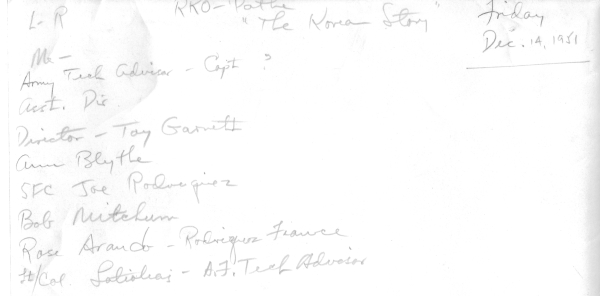 L-R RKO-Pathe "The Korean Story" Friday
Dec. 14, 1951
Me -
Army Tech Advisor - Capt ?
Asst. Dir
Director - Tay Garnett
Ann Blythe
SFC Joe Rodriquez
Bob Mitchum
Rose - Rodriguez
Lt/Col - A.F. Tech Advisor